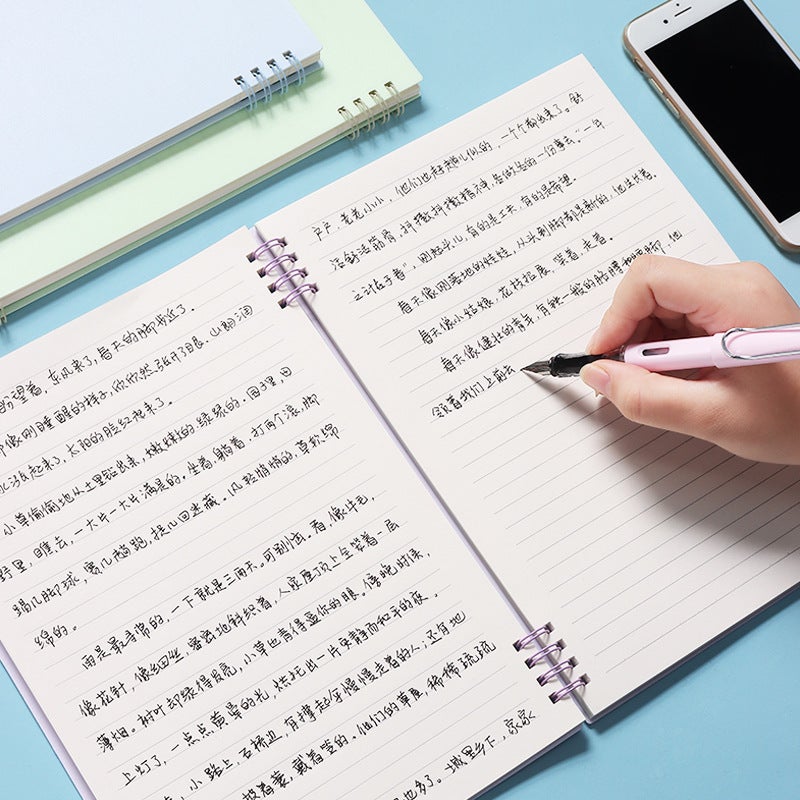 盼望着，东风来了，春天的脚步近了。
像刚睡醒的样子，欣欣然张开了眼。山朗润
水涨起来了，太阳的脸红起来了。
小草偷偷地从土里钻出来，嫩嫩的，绿绿的。园子里，田
野里，瞧去，一大片一大片满是的。坐着，躺着，打两个滚，脚
踢几脚球，赛几趟跑，捉几回迷藏。风轻悄悄的，草软绵
绵的。
雨是最寻常的，一下就是三两天。可别恼。看，像牛毛，
像花针，像细丝，密密地斜织着，人家屋顶上全笼着一层
薄烟。树叶却绿得发亮，小草也青得逼你的眼。傍晚时候，
上灯了，一点点黄晕的光，烘托出一片安静而和平的夜。
，小路上，石桥边，有撑起伞慢慢走着的人；还有地
披着蓑，戴着笠的。他们的草屋，稀稀疏疏
也多了。城里乡下，家家
户户，老老小小，他们也赶趟儿似的，一个个都出来了。舒
活舒活筋骨，抖擞抖擞精神，各做各的一份事去。“一年
之计在于春”，刚起头儿，有的是工夫，有的是希望。
春天像刚落地的娃娃，从头到脚都是新的，他生长着。
春天像小姑娘，花枝招展，笑着，走着。
春天像健壮的青年，有铁一般的胳膊和腰脚，他
领着我们上前去